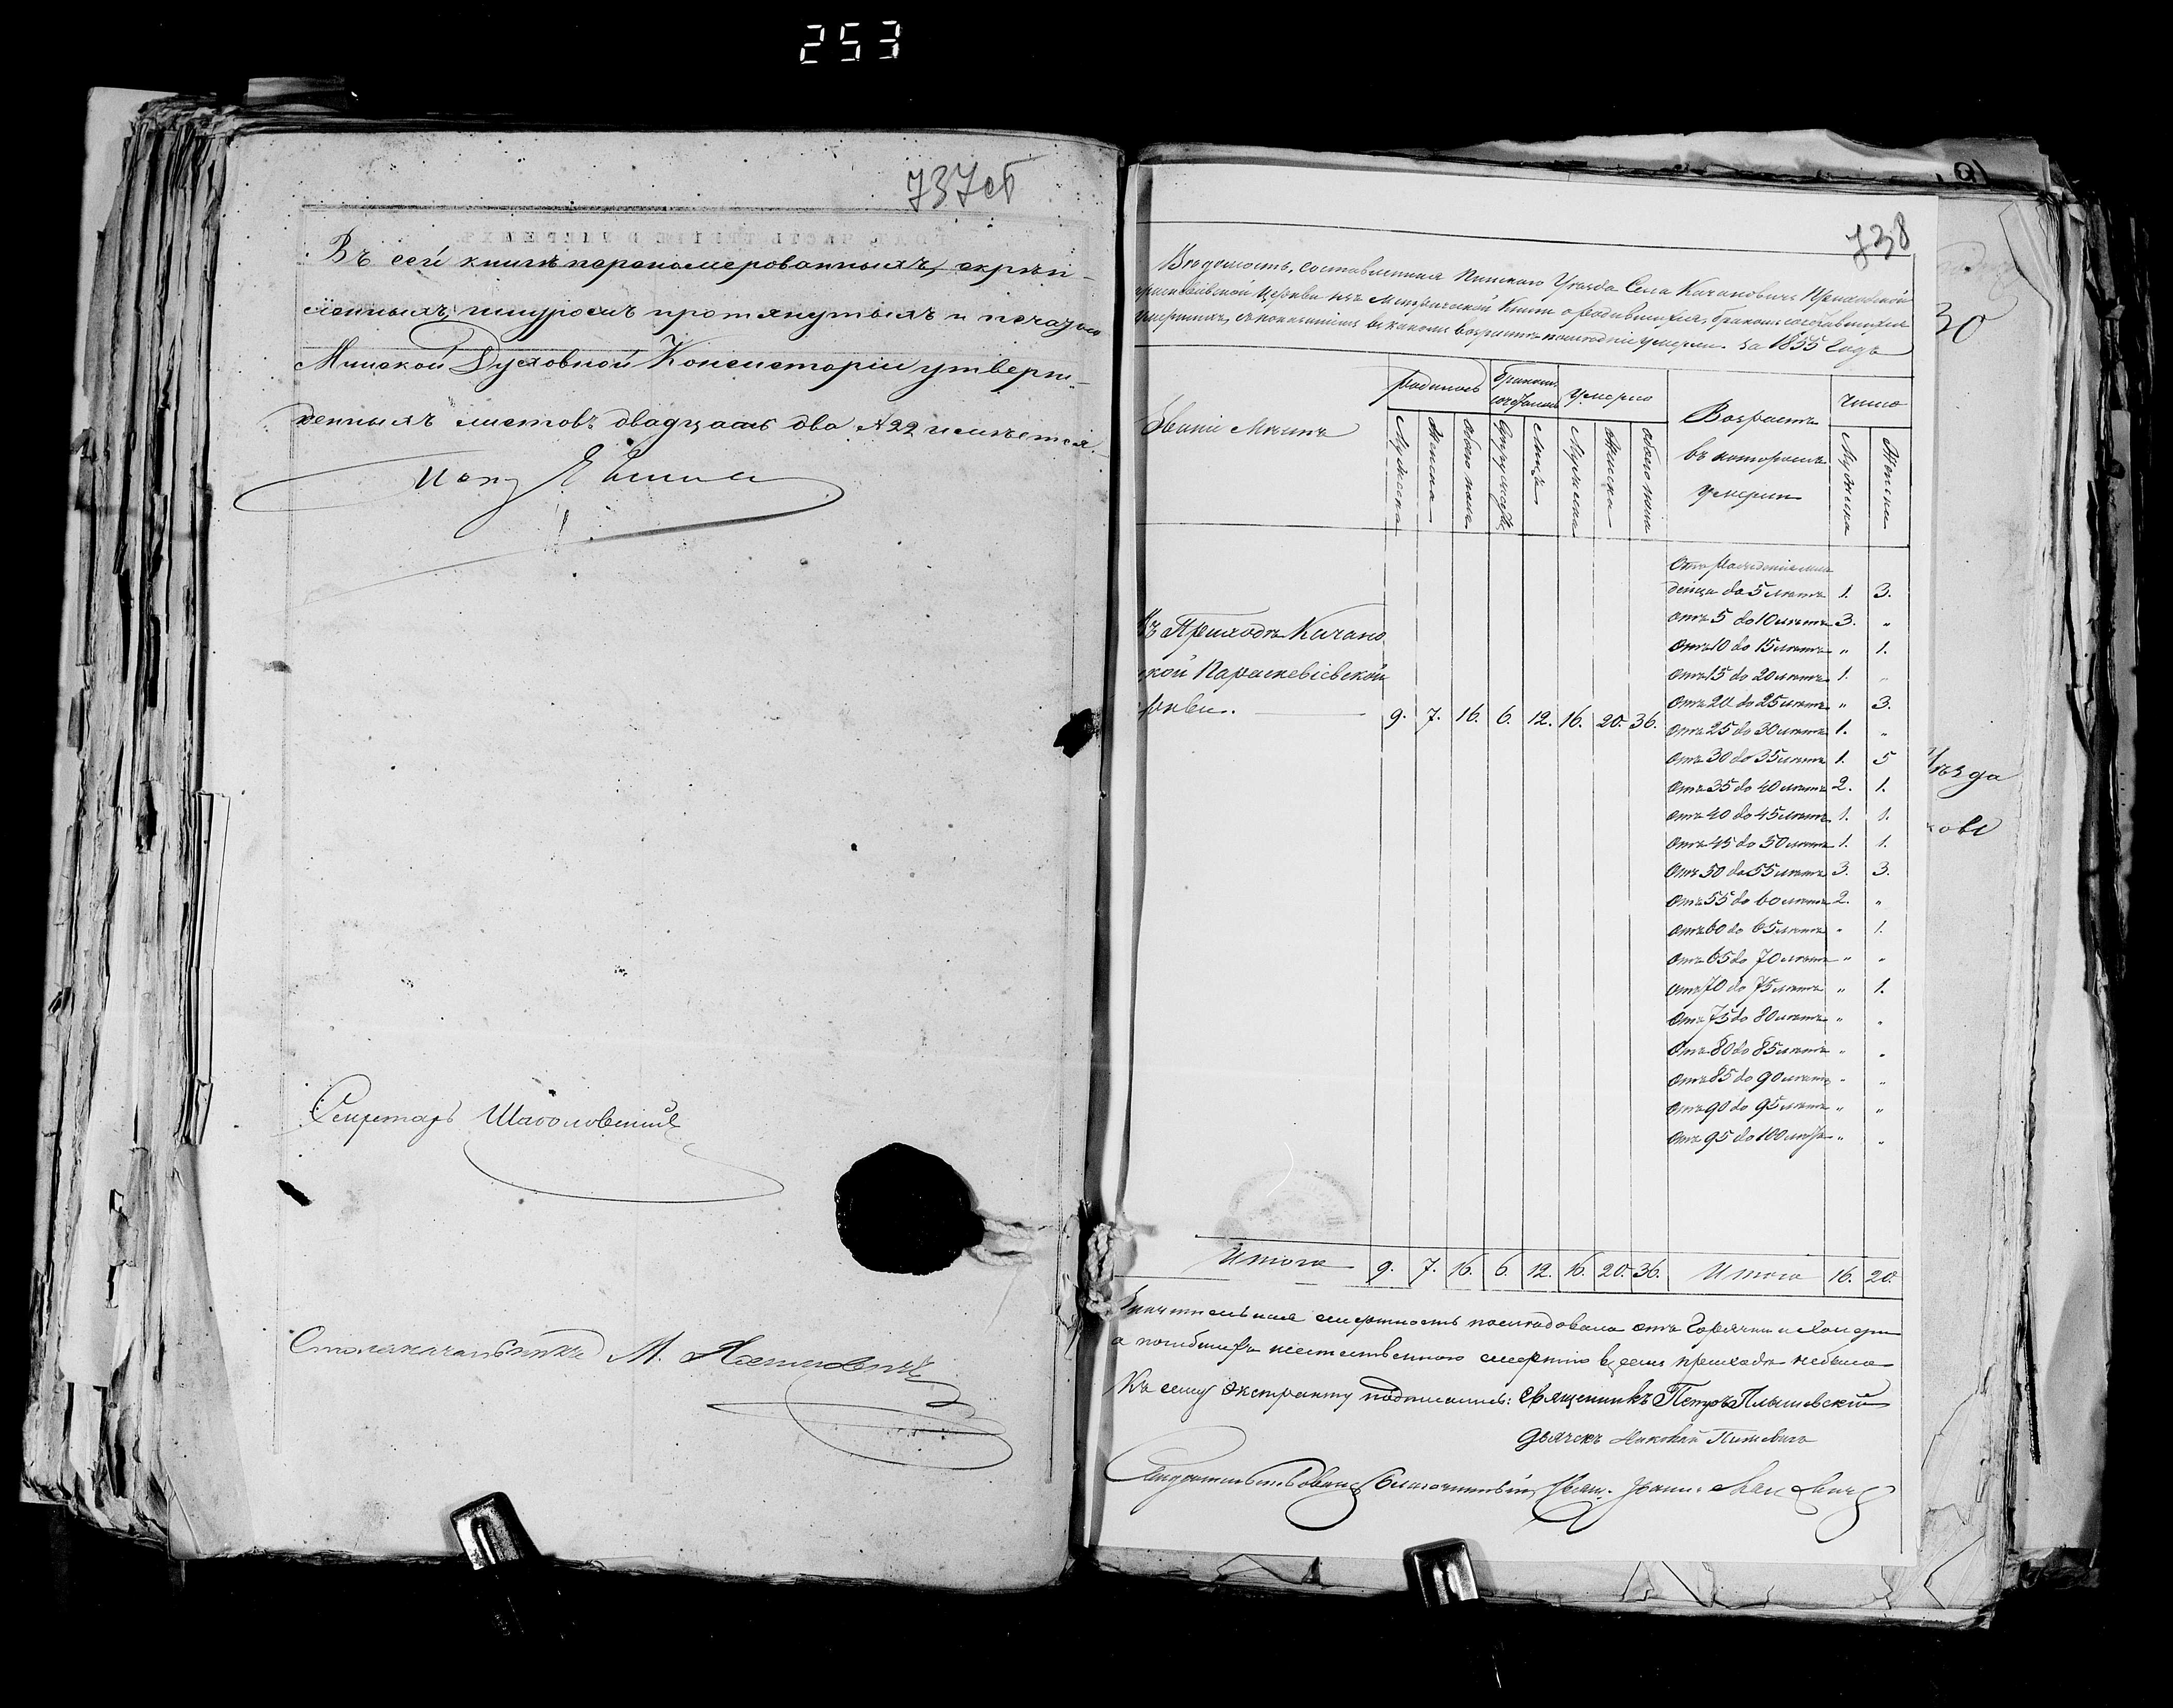 253
737об
Въ сей книгѣ перенумерованныхъ, скрѣп-
ленныхъ, шнуромъ протянутыхъ и печатью
Минской Духовной Консисторіи утверж-
денныхъ листовъ двадцать два № 22 имѣется.
Секретарь
Столоначальникъ М.
738
Вѣдомость, составленная Пинскаго Уѣзда Села Качановичъ Приходской
Церкви изъ Метрической Книги о родившихся, бракомъ сочетавшихся
умершихъ, съ показаніемъ въ какомъ возрастѣ померли. За 1855 Годъ
Званіе Мѣстъ
родилось
Бракомъ сочетались
Умерло
Возрастъ въ которомъ умерли
Число
Мужеска
Женска
Обоего пола
Супружествъ
Лицъ
Мужеска
Женска
Обоего пола
Мужеска
Женска
Отъ рожденія мла
денца до 5 лѣтъ 1. 3.
Отъ 5 до 10 лѣтъ 3. "
Отъ 10 до 15 лѣтъ " 1.
Отъ 15 до 20 лѣтъ 1. "
Отъ 20 до 25 лѣтъ " 3.
Отъ 25 до 30 лѣтъ 1. "
Отъ 30 до 35 лѣтъ 1. 5
Отъ 35 до 40 лѣтъ 2. 1.
Отъ 40 до 45 лѣтъ 1. 1.
Отъ 45 до 50 лѣтъ 1. 1.
Отъ 50 до 55 лѣтъ 3. 3.
Отъ 55 до 60 лѣтъ 2. "
Отъ 60 до 65 лѣтъ " 1.
Отъ 65 до 70 лѣтъ " "
Отъ 70 до 75 лѣтъ " 1.
Отъ 75 до 80 лѣтъ " "
Отъ 80 до 85 лѣтъ " "
Отъ 85 до 90 лѣтъ " "
Отъ 90 до 95 лѣтъ " "
Отъ 95 до 100 лѣтъ " "
Въ Приходѣ Качано
ской Параскевіевской
ркви. 9. 7. 16. 6. 12. 16. 20. 36.
Итого 9. 7. 16. 6. 12. 16. 20. 36. Итого 16. 20.
Значительная смертность послѣдовала отъ Горячки и Холеры
а погибшихъ неестественною смертію въ семъ приходѣ небыло
Къ сему экстракту подписались: Священникъ Петръ
Дьячекъ Николай
Свидѣтельствовалъ Благочинный Свящ. Іоаннъ
30
Уѣзда